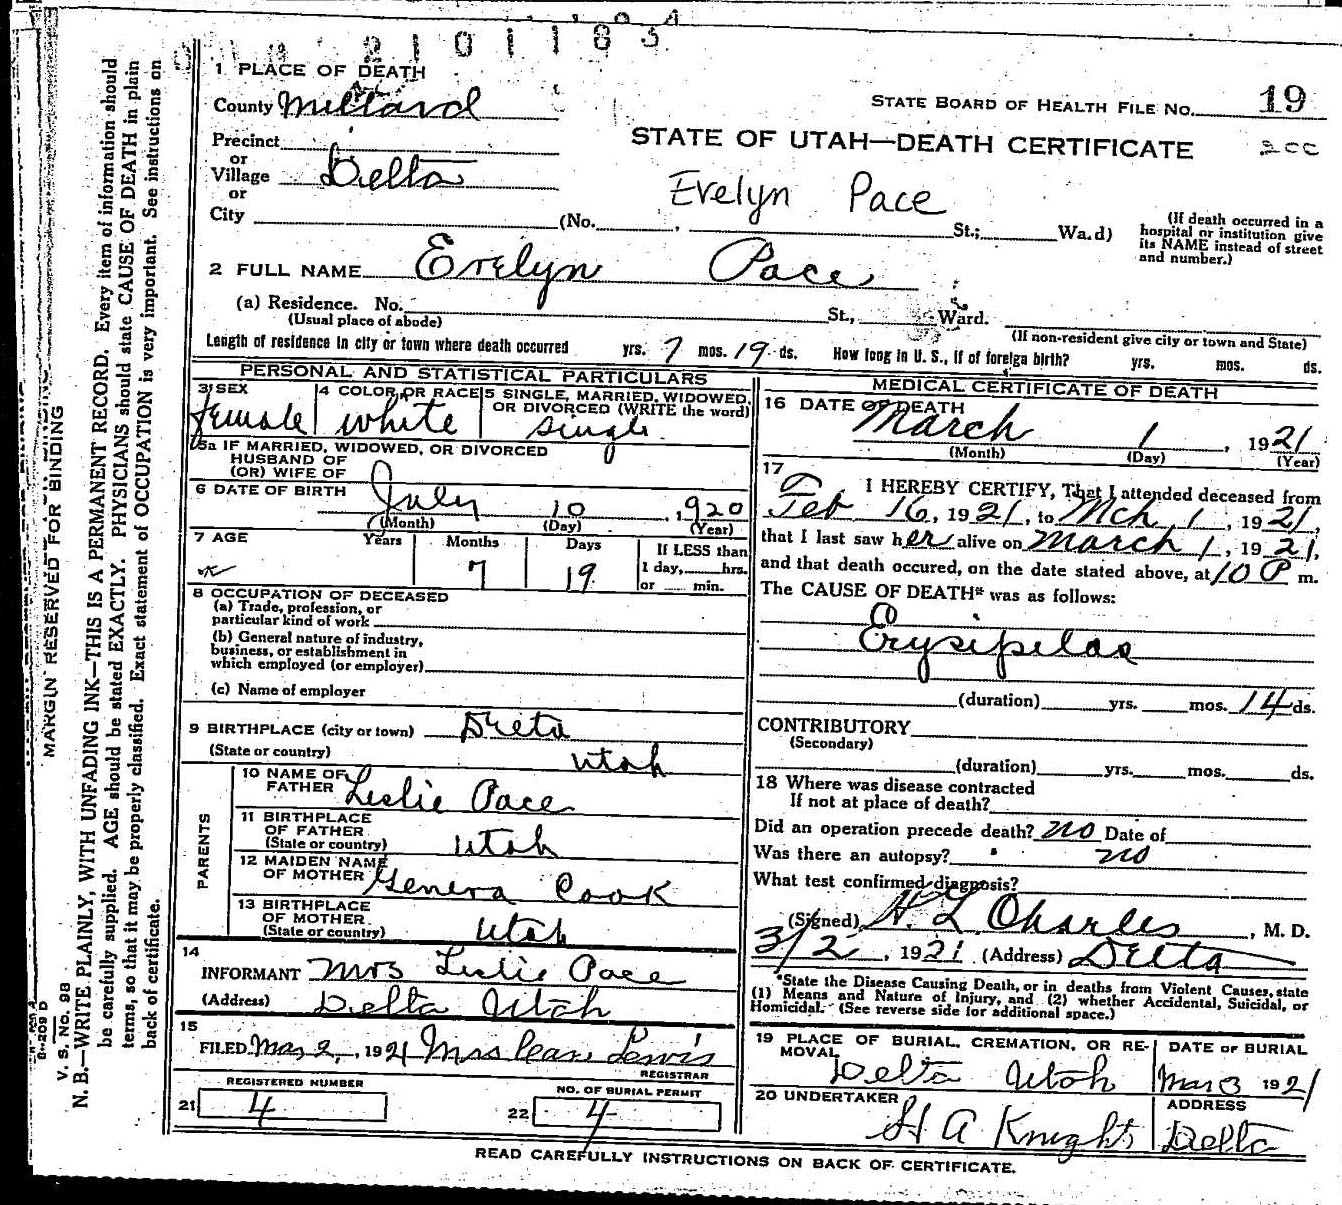 2101183
1 PLACE OF DEATH
County Millard
STATE BOARD OF HEALTH FILE No. 19
Precinct
or
Village Delta
or
City (No. , St.; Wa.d)
STATE OF UTAH—DEATH CERTIFICATE
Evelyn Pace
(If death occurred in a
hospital or institution give
its NAME instead of street
and number.)
2 FULL NAME Evelyn Pace
(a) Residence. No. St., Ward.
(Usual place of abode)
(If non-resident give city or town and State)
Length of residence in city or town where death occurred yrs. 7 mos. 19 ds. How long in U. S., if of foreign birth? yrs. mos. ds.
PERSONAL AND STATISTICAL PARTICULARS
3 SEX
female
4 COLOR OR RACE
white
5 SINGLE, MARRIED, WIDOWED,
OR DIVORCED (WRITE the word)
single
5a IF MARRIED, WIDOWED, OR DIVORCED
HUSBAND OF
(OR) WIFE OF
6 DATE OF BIRTH July 10, 1920
(Month) (Day) (Year)
7 AGE Years Months Days If LESS than
1 day, hrs.
or min.
7 19
8 OCCUPATION OF DECEASED
(a) Trade, profession, or
particular kind of work
(b) General nature of industry,
business, or establishment in
which employed (or employer)
(c) Name of employer
9 BIRTHPLACE (city or town) Delta
(State or country) Utah
PARENTS
10 NAME OF
FATHER Leslie Pace
11 BIRTHPLACE
OF FATHER
(State or country) Utah
12 MAIDEN NAME
OF MOTHER Geneva Cook
13 BIRTHPLACE
OF MOTHER
(State or country) Utah
14
INFORMANT Mrs Leslie Pace
(Address) Delta Utah
15
FILED Mar 2, 1921 Mrs Lewis
REGISTRAR
REGISTERED NUMBER
21 4
NO. OF BURIAL PERMIT
22 4
MEDICAL CERTIFICATE OF DEATH
16 DATE OF DEATH
March 1, 1921
(Month) (Day) (Year)
17
I HEREBY CERTIFY, That I attended deceased from
Feb 16, 1921, to Mch 1, 1921,
that I last saw her alive on March 1, 1921,
and that death occured, on the date stated above, at 10 P m.
The CAUSE OF DEATH* was as follows:
Erysipelas
(duration) yrs. mos. 14 ds.
CONTRIBUTORY
(Secondary)
(duration) yrs. mos. ds.
18 Where was disease contracted
If not at place of death?
Did an operation precede death? no Date of
Was there an autopsy? no
What test confirmed diagnosis?
(Signed) H. L Charles, M. D.
3/2, 1921 (Address) Delta
*State the Disease Causing Death, or in deaths from Violent Causes, state
(1) Means and Nature of Injury, and (2) whether Accidental, Suicidal, or
Homicidal. (See reverse side for additional space.)
19 PLACE OF BURIAL, CREMATION, OR RE-
MOVAL
Delta Utah
DATE OF BURIAL
Mar 3 1921
20 UNDERTAKER
H A Knights
ADDRESS
Delta
READ CAREFULLY INSTRUCTIONS ON BACK OF CERTIFICATE.
MARGIN RESERVED FOR BINDING
V. S. No. 98
N. B.—WRITE PLAINLY, WITH UNFADING INK—THIS IS A PERMANENT RECORD. Every item of information should
be carefully supplied. AGE should be stated EXACTLY. PHYSICIANS should state CAUSE OF DEATH in plain
terms, so that it may be properly classified. Exact statement of OCCUPATION is very important. See instructions on
back of certificate.